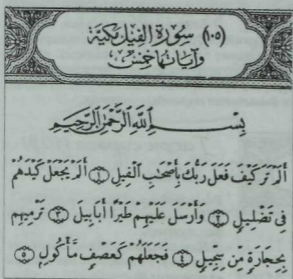 (١٠٥) سُورَةُ الفِيلِ مَكِّيَّة
وَآيَاتُهَا خَمْسٌ
بِسْمِ اللَّهِ الرَّحْمَٰنِ الرَّحِيمِ
أَلَمْ تَرَ كَيْفَ فَعَلَ رَبُّكَ بِأَصْحَٰبِ الْفِيلِ ١ أَلَمْ يَجْعَلْ كَيْدَهُمْ
فِي تَضْلِيلٍ ٢ وَأَرْسَلَ عَلَيْهِمْ طَيْرًا أَبَابِيلَ ٣ تَرْمِيهِم
بِحِجَارَةٍ مِّن سِجِّيلٍ ٤ فَجَعَلَهُمْ كَعَصْفٍ مَّأْكُولٍ ٥